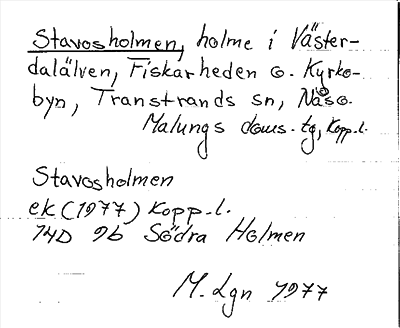 Stavosholmen, holme i Väster-
dalälven, Fiskarheden o. Kyrko-
byn, Transtrands sn, Nås o.
Malungs doms. tg, Kopp. l.
Stavosholmen
ek (1977) Kopp. l.
14D 9b Södra Holmen
M. Lgn 1977